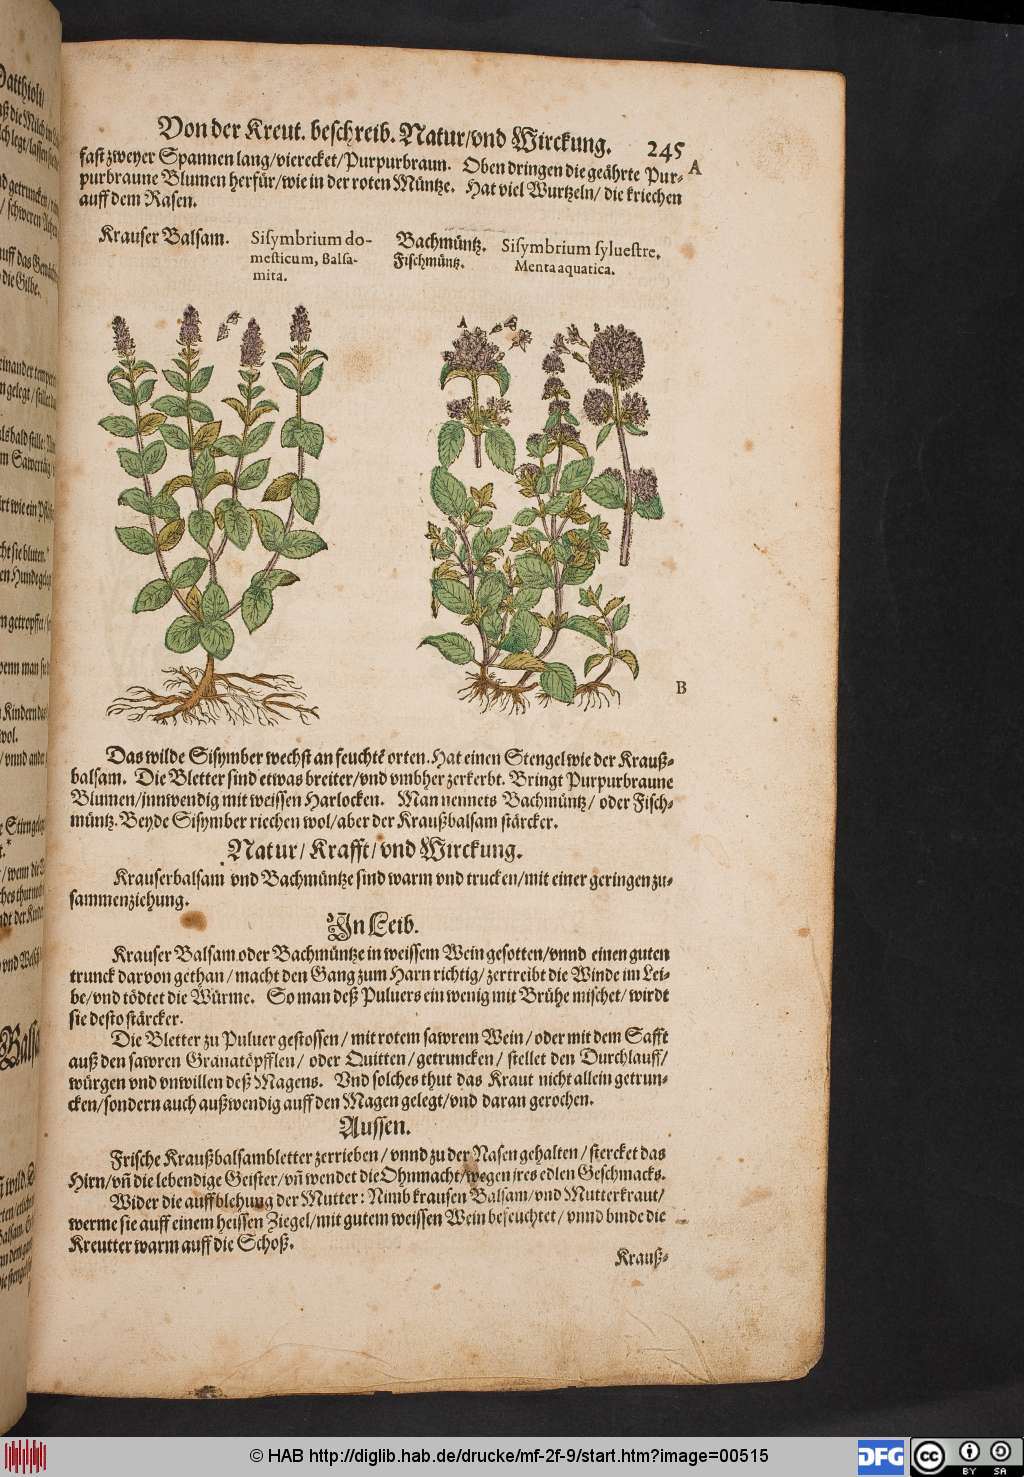 Von der Kreut. beschreib. Natur/vnd Wirckung. 245
fast zweyer Spannen lang/vierecket/Purpurbraun. Oben dringen die geährte Pur- A
purbraune Blumen herfür/wie in der roten Müntze. Hat viel Wurtzeln/ die kriechen
auff dem Rasen.
Krauser Balsam. Sisymbrium do-
mesticum, Balsa-
mita.
Bachmüntz. Sisymbrium syluestre.
Fischmüntz. Menta aquatica.
A B
B
Das wilde Sisymber wechst an feuchtē orten. Hat einen Stengel wie der Krauß-
balsam. Die Bletter sind etwas breiter/vnd vmbher zerkerbt. Bringt Purpurbraune
Blumen/innwendig mit weissen Harlocken. Man nennets Bachmüntz/ oder Fisch-
müntz. Beyde Sisymber riechen wol/aber der Kraußbalsam stärcker.
Natur/ Krafft/ vnd Wirckung.
Krauserbalsam vnd Bachmüntze sind warm vnd trucken/mit einer geringen zu-
sammenziehung.
In Leib.
Krauser Balsam oder Bachmüntze in weissem Wein gesotten/vnnd einen guten
trunck darvon gethan / macht den Gang zum Harn richtig/ zertreibt die Winde im Lei-
be/vnd tödtet die Würme. So man deß Puluers ein wenig mit Brühe mischet/ wirdt
sie desto stärcker.
Die Bletter zu Puluer gestossen / mit rotem sawrem Wein / oder mit dem Safft
auß den sawren Granatöpfflen/ oder Quitten / getruncken / stellet den Durchlauff/
würgen vnd vnwillen deß Magens. Vnd solches thut das Kraut nicht allein getrun-
cken/sondern auch außwendig auff den Magen gelegt/vnd daran gerochen.
Aussen.
Frische Kraußbalsambletter zerrieben / vnnd zu der Nasen gehalten / stercket das
Hirn/vñ die lebendige Geister/vñ wendet die Ohnmacht/wegen jres edlen Geschmacks.
Wider die auffblehung der Mutter: Nimb krausen Balsam/vnd Mutterkraut/
werme sie auff einem heissen Ziegel/mit gutem weissen Wein befeuchtet / vnnd binde die
Kreutter warm auff die Schoß.
Krauß-
© HAB http://diglib.hab.de/drucke/mf-2f-9/start.htm?image=00515
DFG
CC BY SA